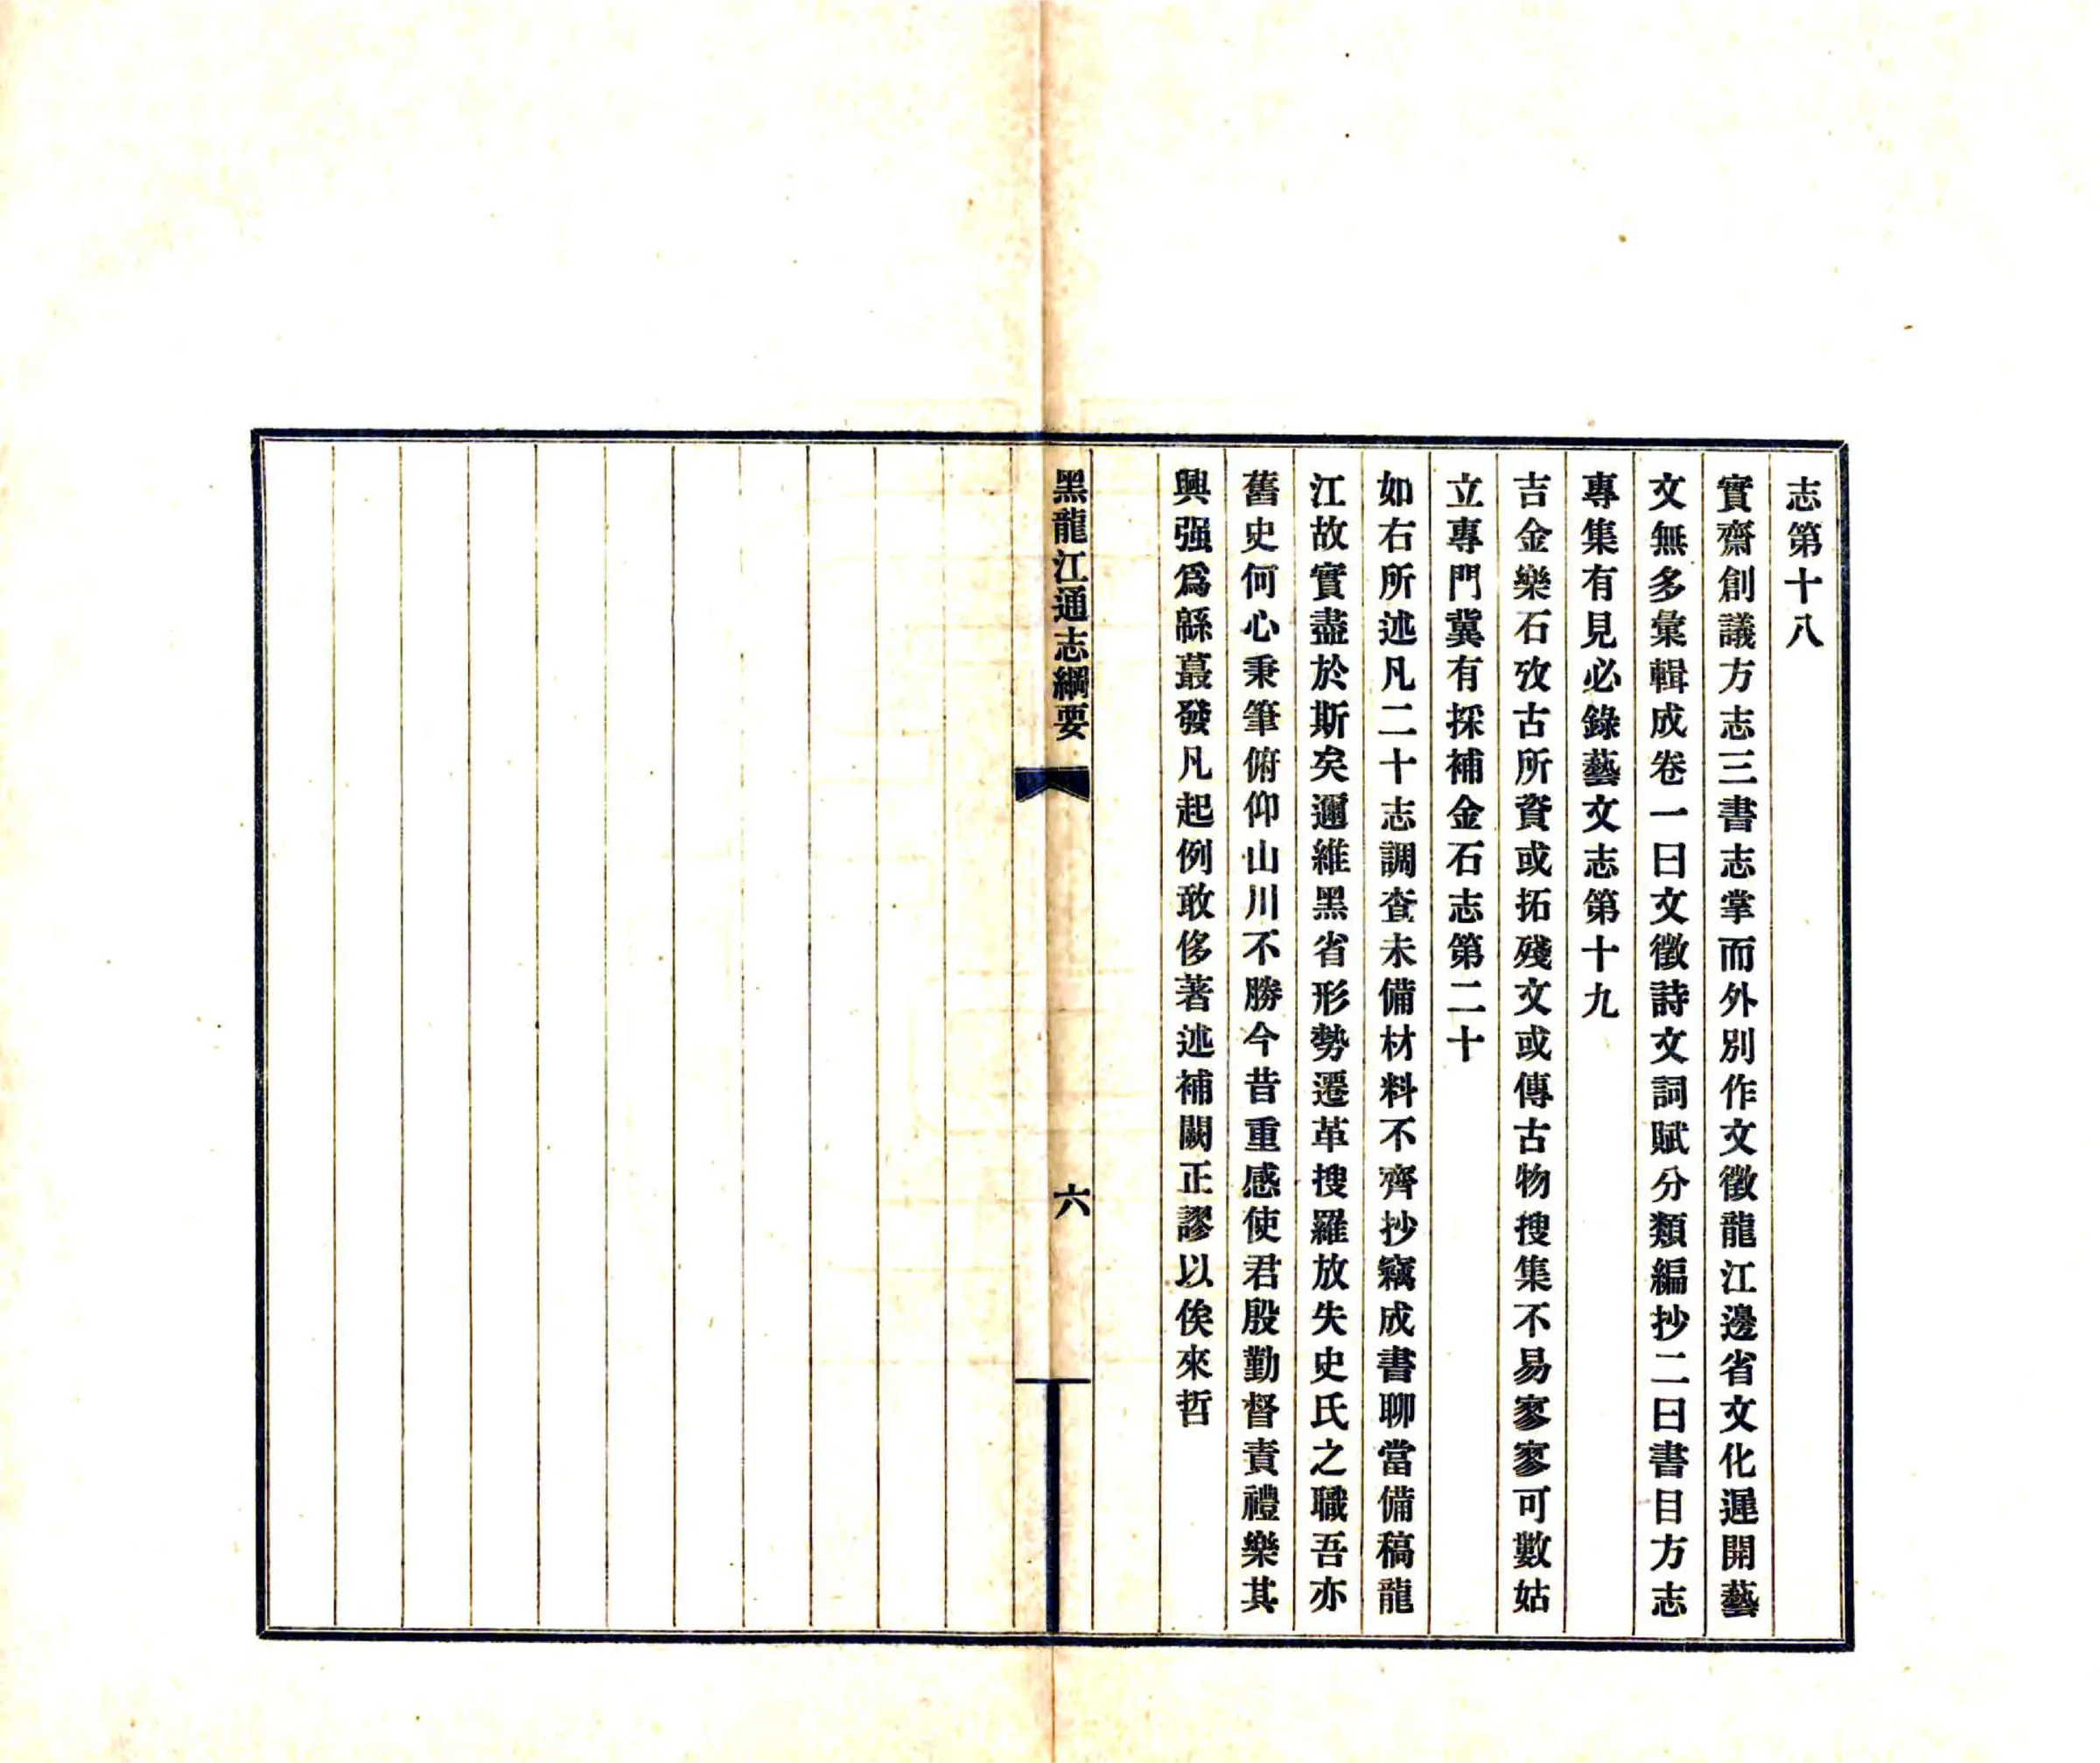 志第十八
實齋創議方志三書志掌而外別作文徵龍江邊省文化遲開藝
文無多彙輯成卷一曰文徵詩文詞賦分類編抄二曰書目方志
專集有見必錄藝文志第十九
吉金樂石攷古所資或拓殘文或傳古物搜集不易寥寥可數姑
立專門冀有採補金石志第二十
如右所述凡二十志調查未備材料不齊抄竊成書聊當備稿龍
江故實盡於斯矣邇維黑省形勢遷革搜羅放失史氏之職吾亦
舊史何心秉筆俯仰山川不勝今昔重感使君殷勤督責禮樂其
興强爲緜蕞發凡起例敢侈著述補闕正謬以俟來哲
黑龍江通志綱要
六